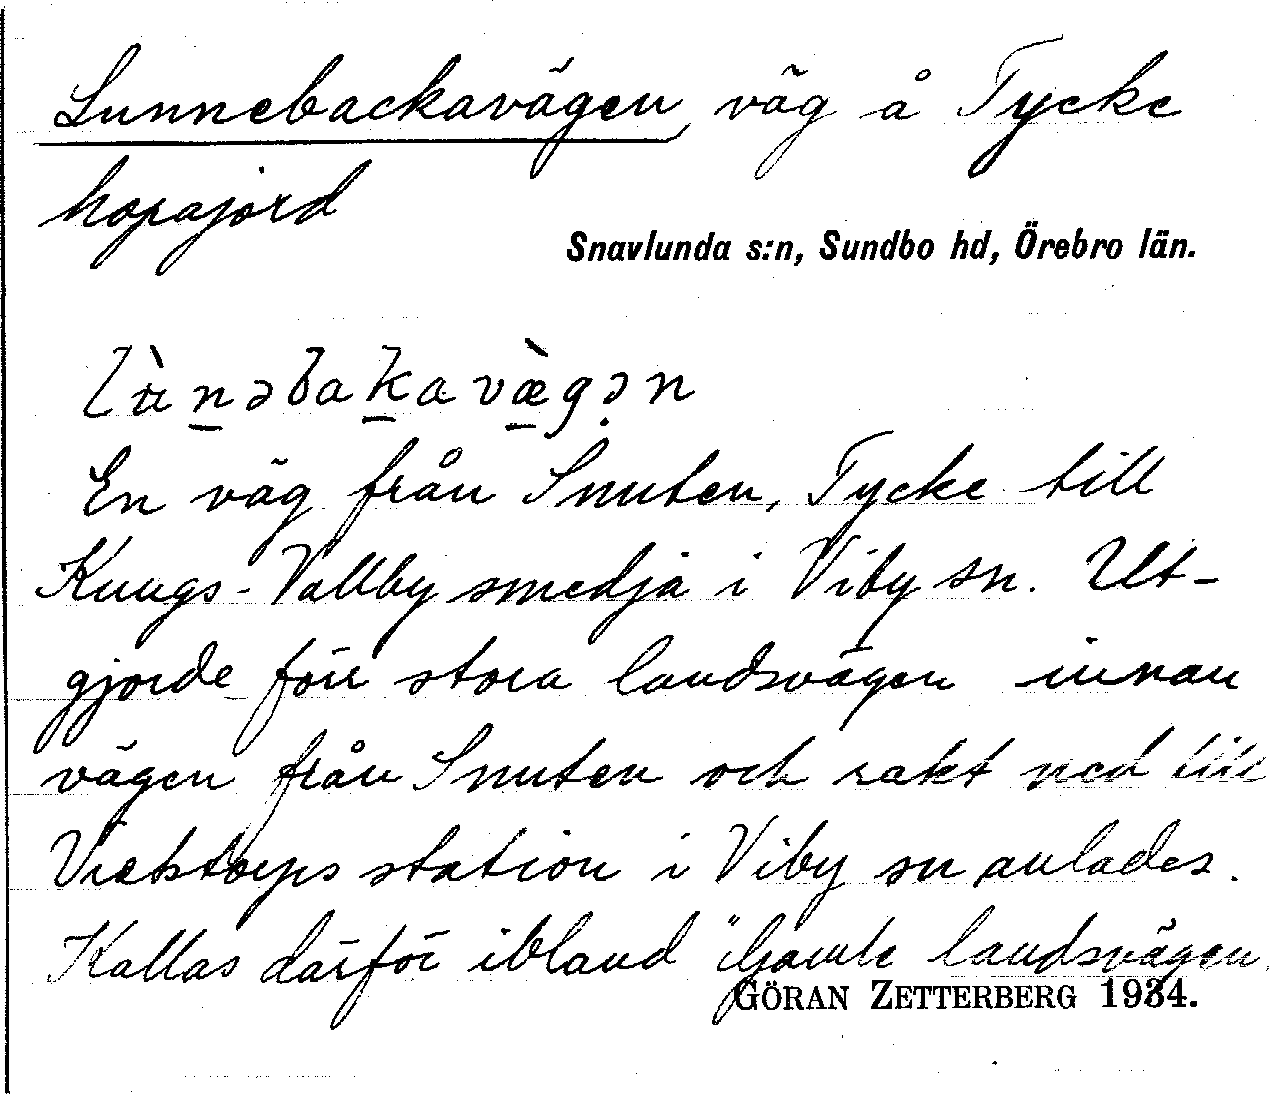 Lunnebackavägen, väg å Tycke
hopajord
Snavlunda s:n, Sundbo hd, Örebro län.
lʉ̀nəbakavæ̀gən
En väg från Snuten, Tycke till
Kungs-Vallby smedja i Viby sn. Ut-
gjorde förr stora landsvägen innan
vägen från Snuten och rakt ned till
Vretstorps station i Viby sn anlades.
Kallas därför ibland "Gamle landsvägen
GÖRAN ZETTERBERG 1934.